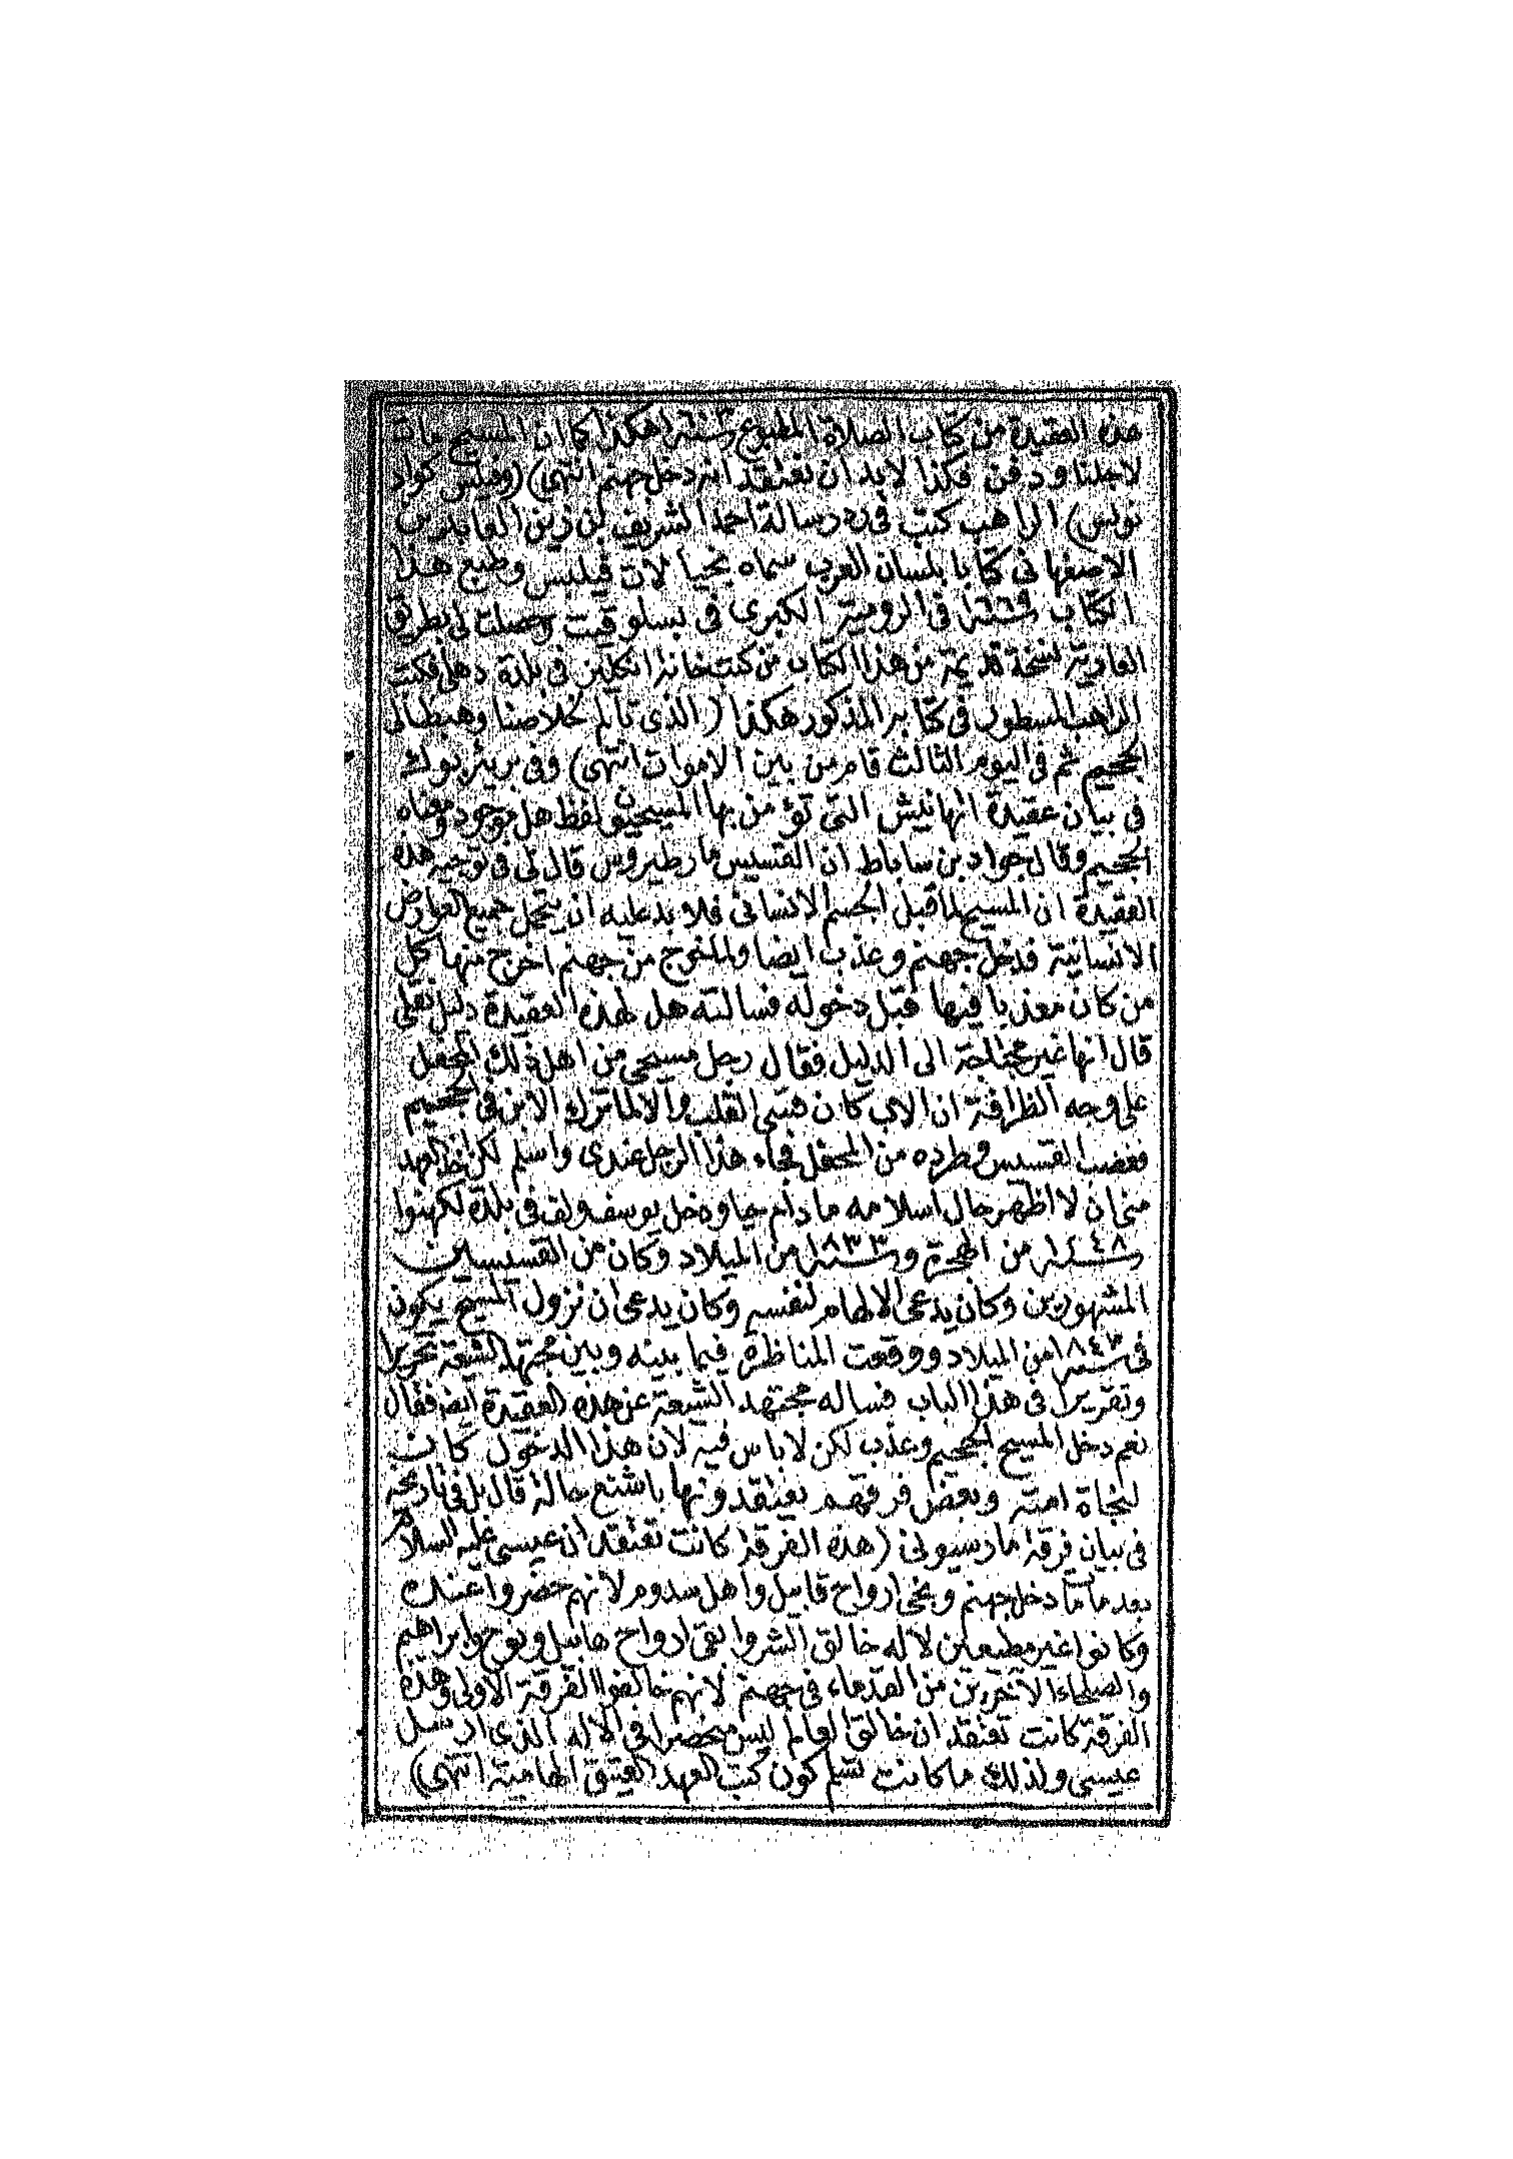 هذه العقيدة من كتاب الصلاة المطبوع سنة ١٦٠٣ هكذا كما ان المسيح مات
لاجلنا ودفن فكذا لا بد ان نعتقد انه دخل جهنم انتهى) (وفيلبس كواد
نولس) الراهب كتب فى رد رسالة احمد الشريف بن زين العابدين
الاصفهانى كتابا بلسان العرب سماه بخيالات فيلبس وطبع هذا
الكتاب سنة ١٦٦٩ فى الرومية الكبرى فى بسلوقيت وحصلت لى بطريق
العارية نسخة قديمة من هذا الكتاب من كتب خانه انكلين فى بلدة دهلى فكتب
الراهب المسطور فى كتابه المذكور هكذا (الذى تالم لخلاصنا وهبط الى
الجحيم ثم فى اليوم الثالث قام من بين الاموات انتهى) وفى بريئر بوك
فى بيان عقيدة اتهانيش التى تؤمن بها المسيحيون لفظ هل موجود ومعناه
الجحيم وقال جواد بن ساباط ان القسيس مارطيروس قال لى فى توجيه هذه
العقيدة ان المسيح لما قبل الجسم الانسانى فلا بد عليه ان يتحمل جميع العوارض
الانسانية فدخل جهنم وعذب ايضا ولما خرج من جهنم اخرج منها كل
من كان معذبا فيها قبل دخوله فسالته هل لهذه العقيدة دليل نقلى
قال انها غير محتاجة الى الدليل فقال رجل مسيحى من اهل ذلك المحفل
على وجه الظرافة ان الاب كان قسى القلب والا لما ترك الابن فى الجحيم
فغضب القسيس وطرده من المحفل فجاء هذا الرجل عندى واسلم لكن اخذ العهد
منى ان لا اظهر حال اسلامه ما دام حيا ودخل يوسف ولف فى بلدة لكهنوا
سنة ١٢٤٨ من الهجرة وسنة ١٨٣٣ من الميلاد وكان من القسيسين
المشهورين وكان يدعى الالهام لنفسه وكان يدعى ان نزول المسيح يكون
فى سنة ١٨٤٧ من الميلاد ووقعت المناظرة فيما بينه وبين مجتهد الشيعة تحريرا
وتقريرا فى هذا الباب فساله مجتهد الشيعة عن هذه العقيدة ايضا فقال
نعم دخل المسيح الجحيم وعذب لكن لا باس فيه لان هذا الدخول كان
لنجاة امته وبعض فرقهم يعتقدونها باشنع حالة قال بل فى تاريخه
فى بيان فرقة مارسيونى (هذه الفرقة كانت تعتقد ان عيسى عليه السلام
بعد ما مات دخل جهنم ونجى ارواح قابيل واهل سدوم لانهم حضروا عنده
وكانوا غير مطيعين لاله خالق الشر وابقى ارواح هابيل ونوح وابراهيم
والصلحاء الآخرين من القدماء فى جهنم لانهم خالفوا الفرقة الاولى وهذه
الفرقة كانت تعتقد ان خالق العالم ليس منحصرا فى الاله الذى ارسل
عيسى ولذلك ما كانت تسلم كون كتب العهد العتيق الهامية انتهى)